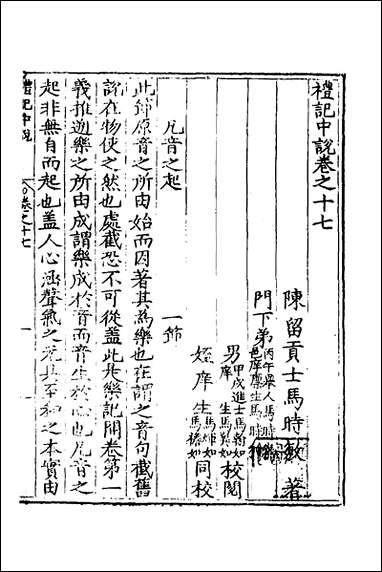 禮記中說卷之十七
陳留貢士馬時敏著
門下弟
丙午舉人馬時
邑庠廩生馬時
男
甲戌進士馬翰如
庠生馬
如
校閱
姪庠生
馬
如
馬榛如
同校
凡音之起 一節
此節原音之所由始而因著其為樂也在謂之音句截舊
說在物使之然也處截恐不可從蓋此是樂記開卷第一
義推遡樂之所由成謂樂成於音而音生於心也凡音之
起非無自而起也蓋人心涵聲氣之元具至和之本實由
禮記中說
卷之十七